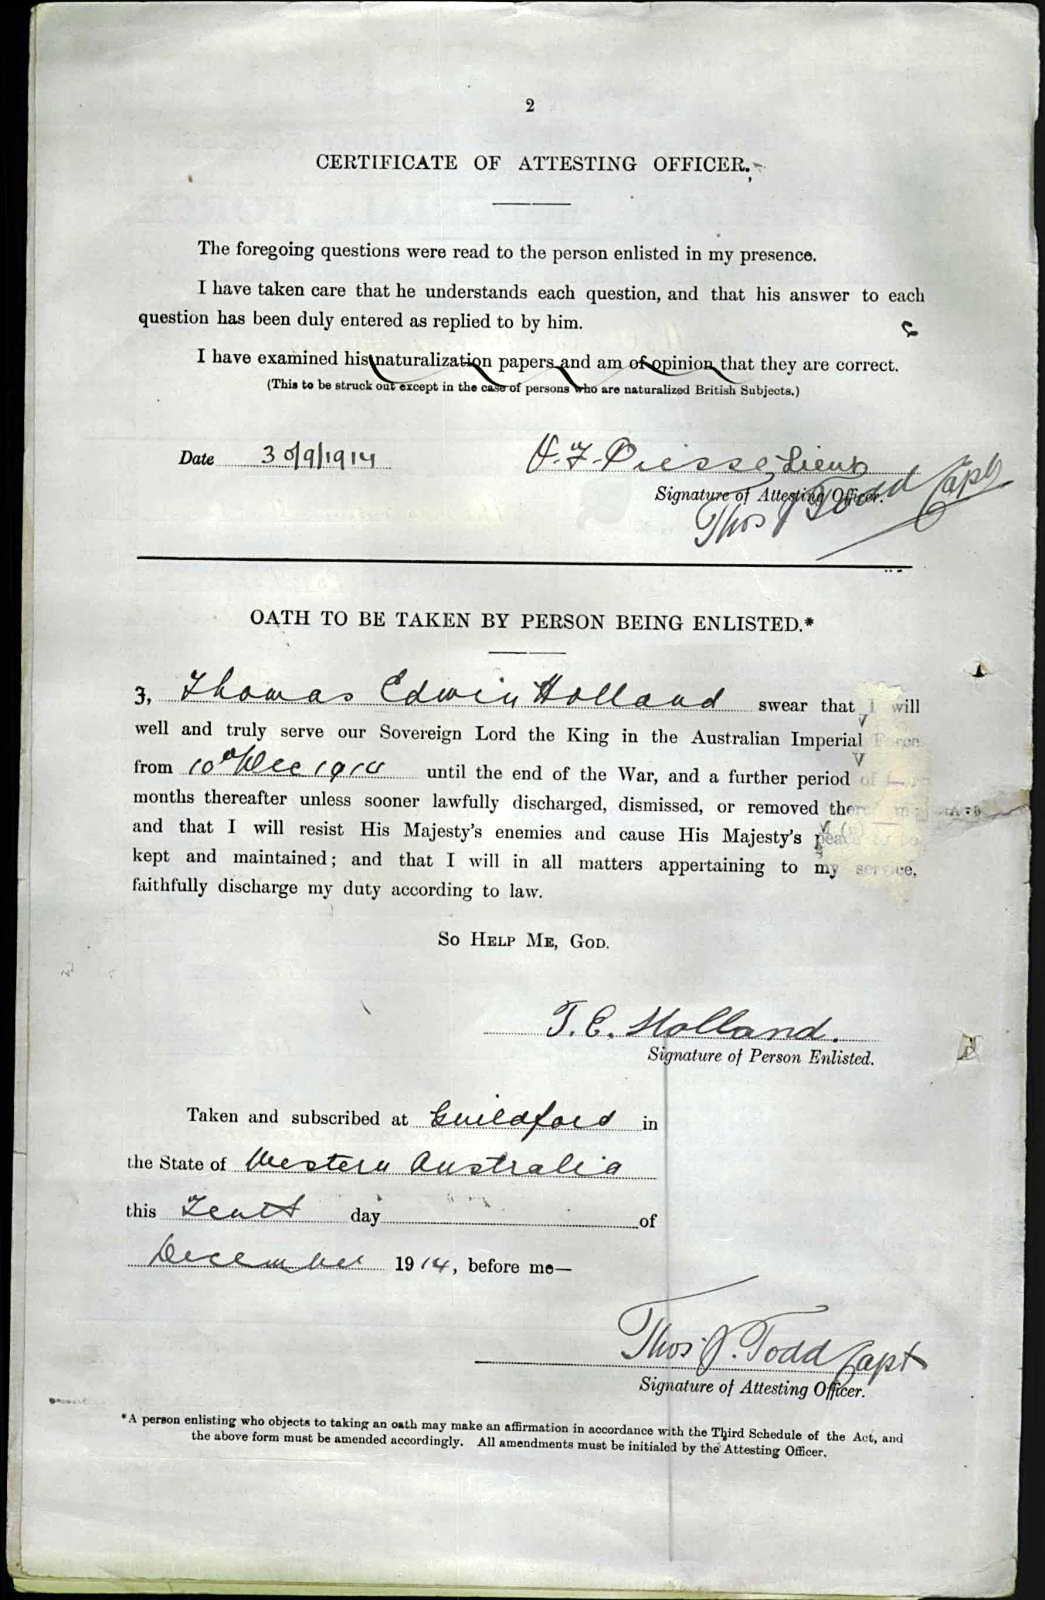 2
CERTIFICATE OF ATTESTING OFFICER.
The foregoing questions were read to the person enlisted in my presence.
I have taken care that he understands each question, and that his answer to each
question has been duly entered as replied to by him.
I have examined his naturalization papers and am of opinion that they are correct.
(This to be struck out except in the case of persons who are naturalized British Subjects.)
Date 30/9/1914
Piesse Lieut
Signature of Attesting Officer.
Thos J Todd Capt
OATH TO BE TAKEN BY PERSON BEING ENLISTED.*
I, Thomas Edwin Holland swear that I will
well and truly serve our Sovereign Lord the King in the Australian Imperial Force
from 10th Dec 1914 until the end of the War, and a further period of
months thereafter unless sooner lawfully discharged, dismissed, or removed
and that I will resist His Majesty's enemies and cause His Majesty's peace
kept and maintained; and that I will in all matters appertaining to my service,
faithfully discharge my duty according to law.
SO HELP ME, GOD.
T. E. Holland.
Signature of Person Enlisted.
Taken and subscribed at Guildford in
the State of Western Australia
this Tenth day of
December 1914, before me—
Thos J. Todd Capt
Signature of Attesting Officer.
*A person enlisting who objects to taking an oath may make an affirmation in accordance with the Third Schedule of the Act, and
the above form must be amended accordingly. All amendments must be initialed by the Attesting Officer.